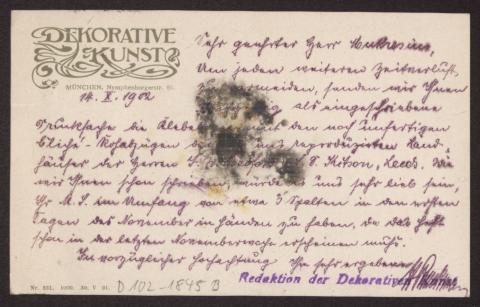 DEKORATIVE
KUNST
MÜNCHEN, Nymphenburgerstr. 86.
14. X. 1902
Sehr geehrter Herr Muthesius,
Um jeden weiteren Zeitverlust
zu vermeiden, senden wir Ihnen
als eingeschriebene
Drucksache die Klebe mit den noch unfertigen
Cliché-Abzügen reproduzierten Land-
häuser der Herren S. Kitson, Leeds. Wie
wir Ihnen schon schrieben, würde es uns sehr lieb sein,
Ihr M.S. im Umfang von etwa 3 Spalten in den ersten
Tagen des November in Händen zu haben, da das Heft
schon in der letzten Novemberwoche erscheinen muß.
In vorzüglicher Hochachtung Ihr sehr ergebener
Redaktion der Dekorativen Kunst
Nr. 251. 1000. 30. V 01.
D 102-1845 B